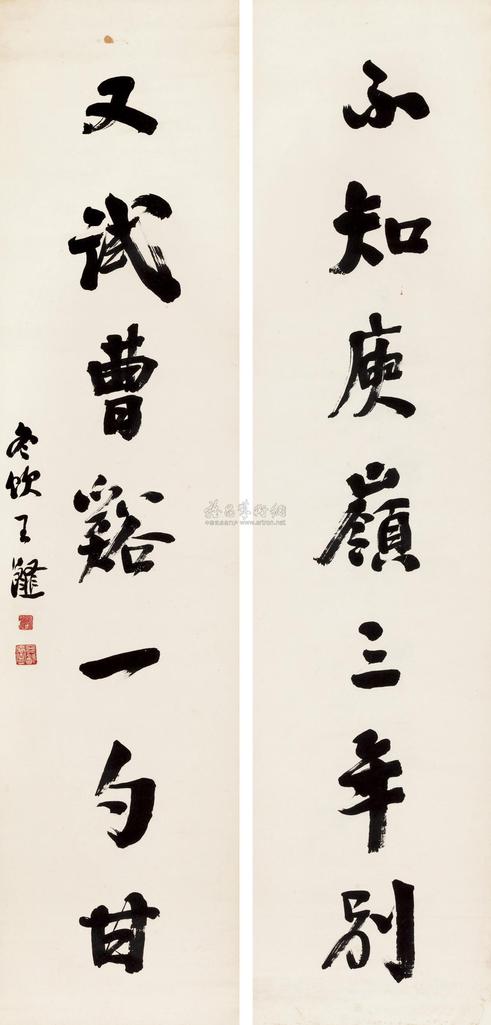 不知庾嶺三年別
又試曹谿一勺甘
冬飲王瀣
雅昌藝術網
www.artron.net